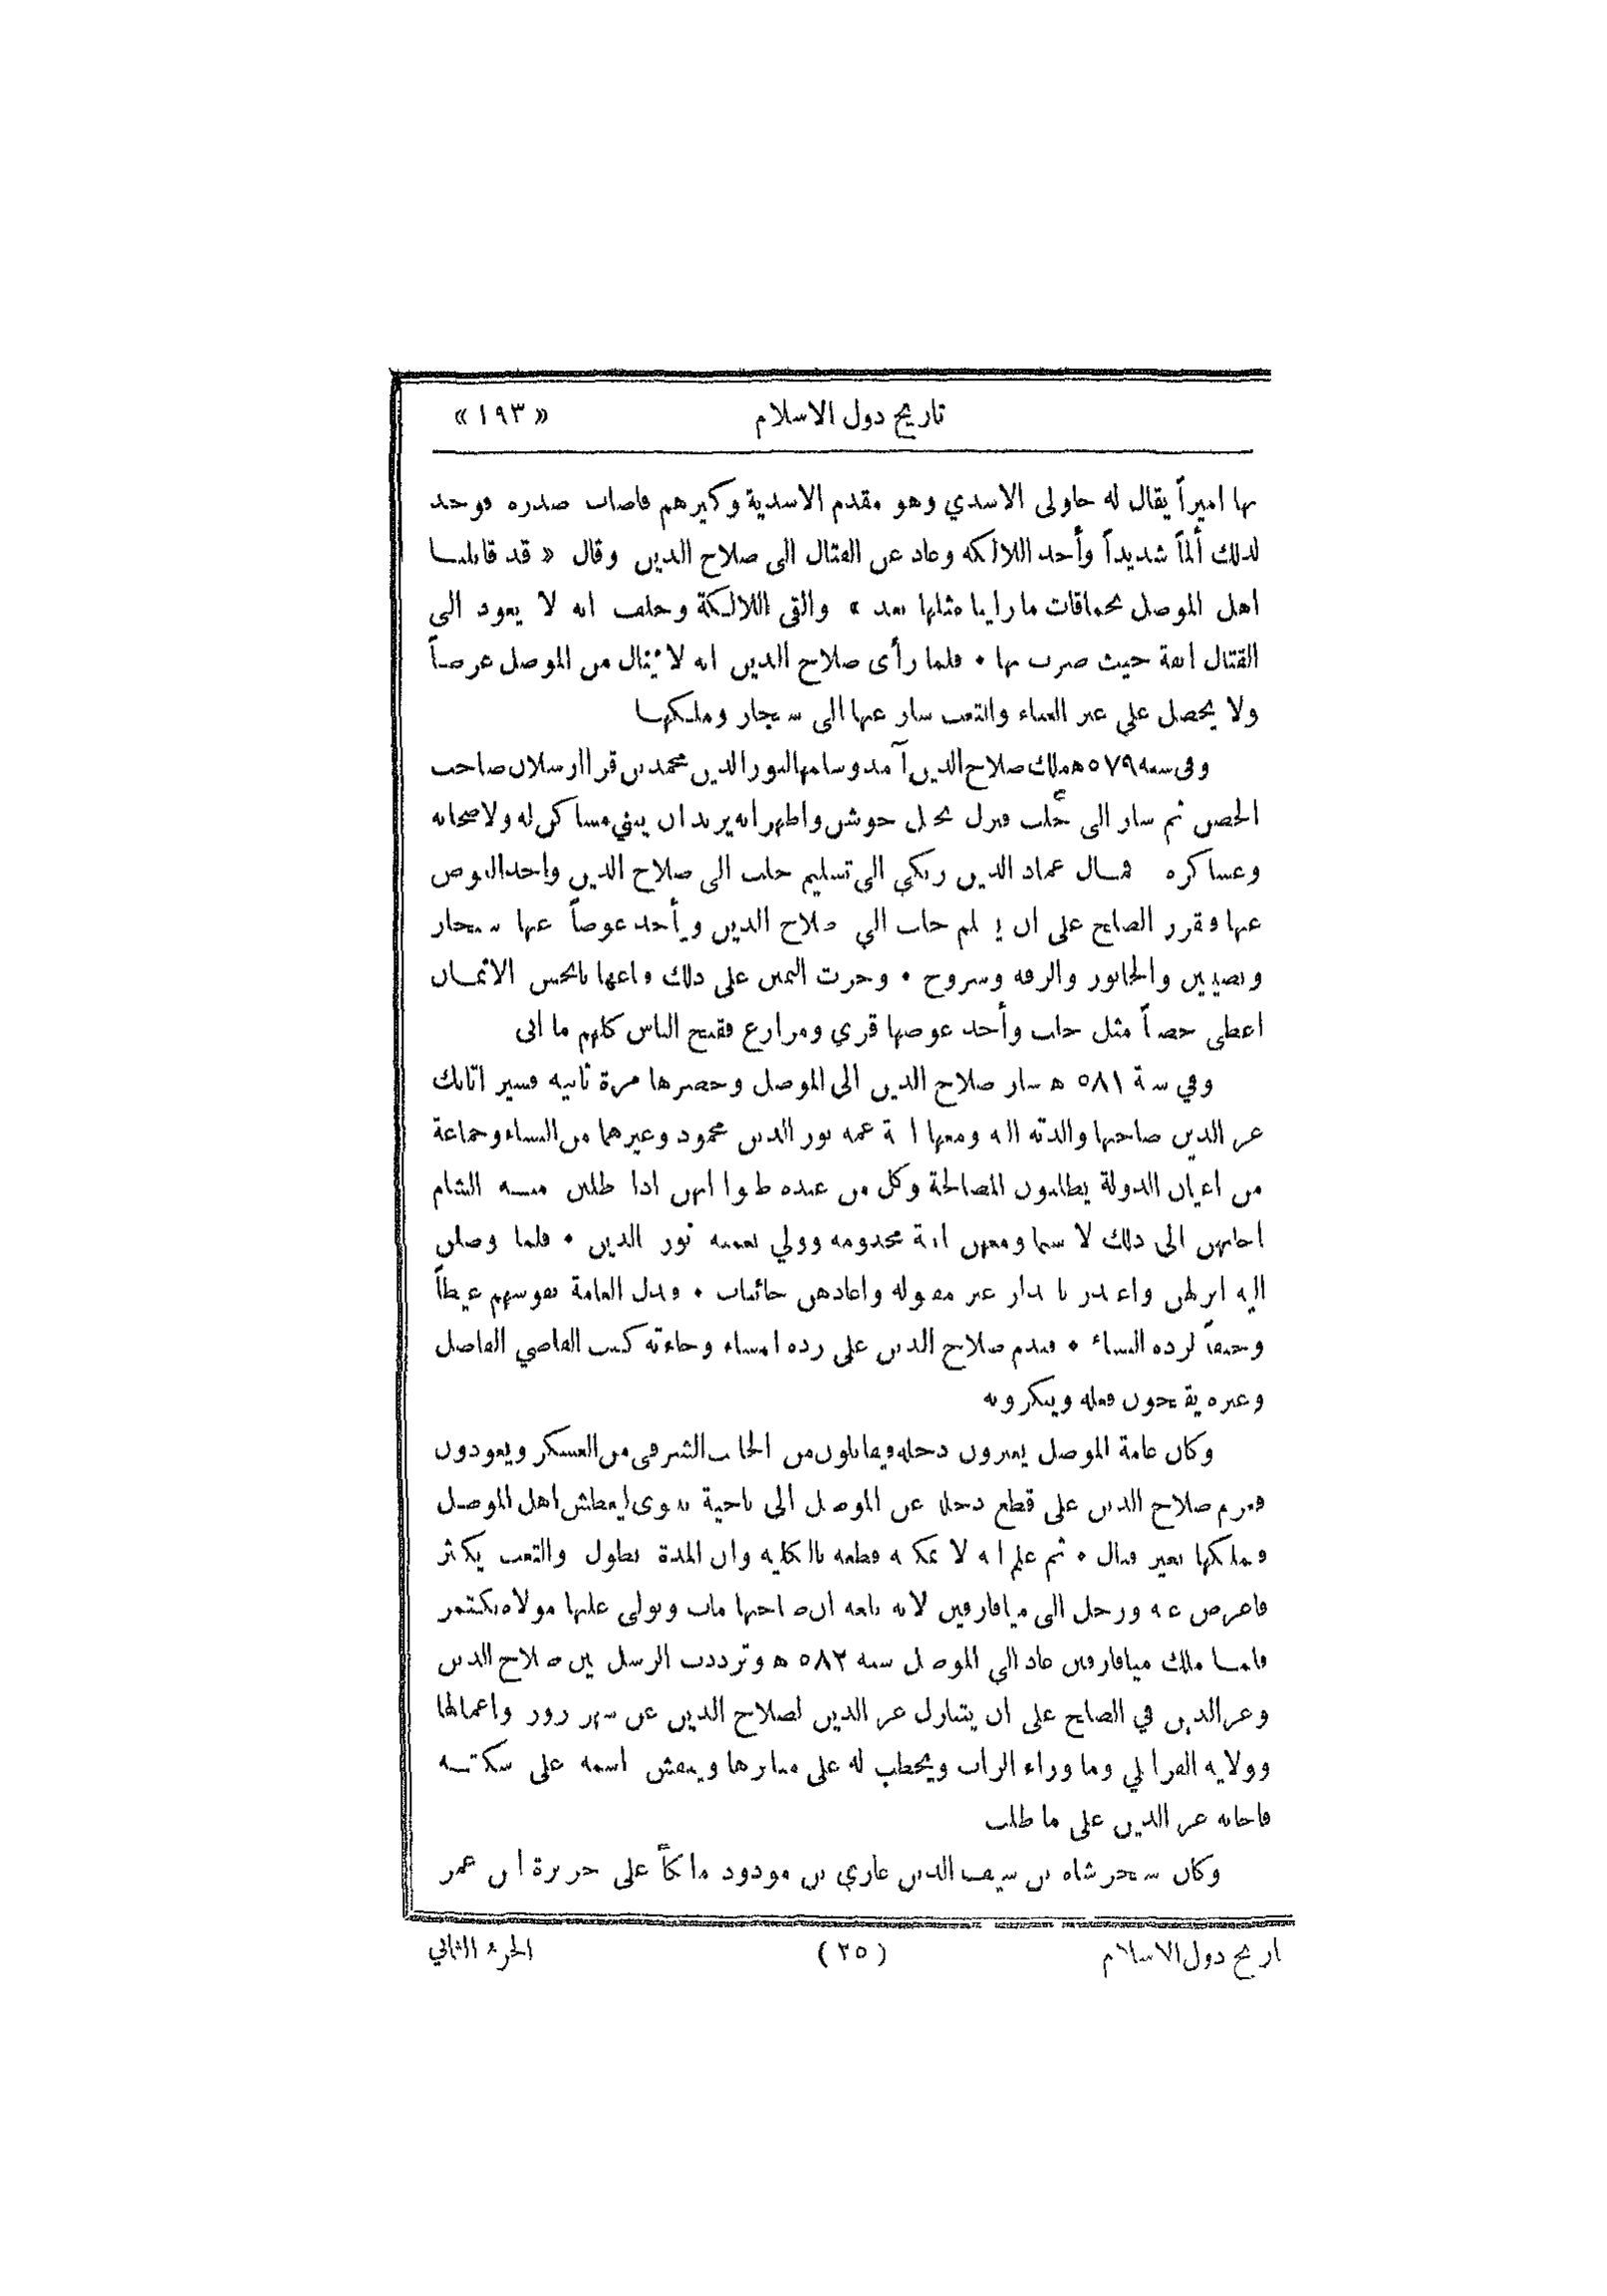 تاريخ دول الاسلام « ١٩٣ »
بها اميراً يقال له جاولى الاسدي وهو مقدم الاسدية وكبيرهم فاصاب صدره فوجد
لذلك ألماً شديداً وأخذ اللالكة وعاد عن القتال الى صلاح الدين وقال « قد قابلنا
اهل الموصل بحماقات ما راينا مثلها بعد » والقى اللالكة وحلف انه لا يعود الى
القتال انفة حيث ضرب بها ٠ فلما رأى صلاح الدين انه لا ينال من الموصل غرضاً
ولا يحصل على غير العناء والتعب سار عنها الى سنجار وملكها
وفي سنة ٥٧٩ ه ملك صلاح الدين آمد وسلمها لنور الدين محمد بن قرا ارسلان صاحب
الحصن ثم سار الى حلب فنزل بجبل جوشن واظهر انه يريد ان يبني مساكن له ولاصحابه
وعساكره فمال عماد الدين زنكي الى تسليم حلب الى صلاح الدين واخذ العوض
عنها فتقرر الصلح على ان يسلم حلب الى صلاح الدين ويأخذ عوضاً عنها سنجار
ونصيبين والخابور والرقة وسروج ٠ وجرت اليمين على ذلك وباعها بابخس الاثمان
اعطى حصناً مثل حلب وأخذ عوضها قرى ومزارع فقبح الناس كلهم ما اتى
وفي سنة ٥٨١ ه سار صلاح الدين الى الموصل وحصرها مرة ثانية فسير اتابك
عز الدين صاحبها والدته اليه ومعها ابنة عمه نور الدين محمود وغيرهما من النساء وجماعة
من اعيان الدولة يطلبون المصالحة وكل من عنده ظنوا انهن اذا طلبن منه الشام
اجابهن الى ذلك لا سيما ومعهن ابنة مخدومه وولي نعمته نور الدين ٠ فلما وصلن
اليه انزلهن واعتذر باعذار غير مقبولة واعادهن خائبات ٠ فبذل العامة نفوسهم غيظاً
وحنقاً لرده النساء ٠ فندم صلاح الدين على رده النساء وجاءته كتب القاضي الفاضل
وغيره يقبحون فعله وينكرونه
وكان عامة الموصل يعبرون دجلة فيقاتلون من الجانب الشرقي من العسكر ويعودون
فعزم صلاح الدين على قطع دجلة عن الموصل الى ناحية نينوى ليعطش اهل الموصل
فيملكها بغير قتال ٠ ثم علم انه لا يمكنه قطعه بالكلية وان المدة تطول والتعب يكثر
فاعرض عنه ورحل الى ميافارقين لانه بلغه ان صاحبها مات وتولى عليها مولاه بكتمر
فلما ملك ميافارقين عاد الى الموصل سنة ٥٨٢ ه وترددت الرسل بين صلاح الدين
وعز الدين في الصلح على ان يتنازل عز الدين لصلاح الدين عن شهر زور واعمالها
وولاية القرابلي وما وراء الزاب ويخطب له على منابرها وينقش اسمه على سكته
فاجابه عز الدين على ما طلب
وكان سنجر شاه بن سيف الدين غازي بن مودود مالكاً على جزيرة ابن عمر
تاريخ دول الاسلام (٢٥) الجزء الثاني